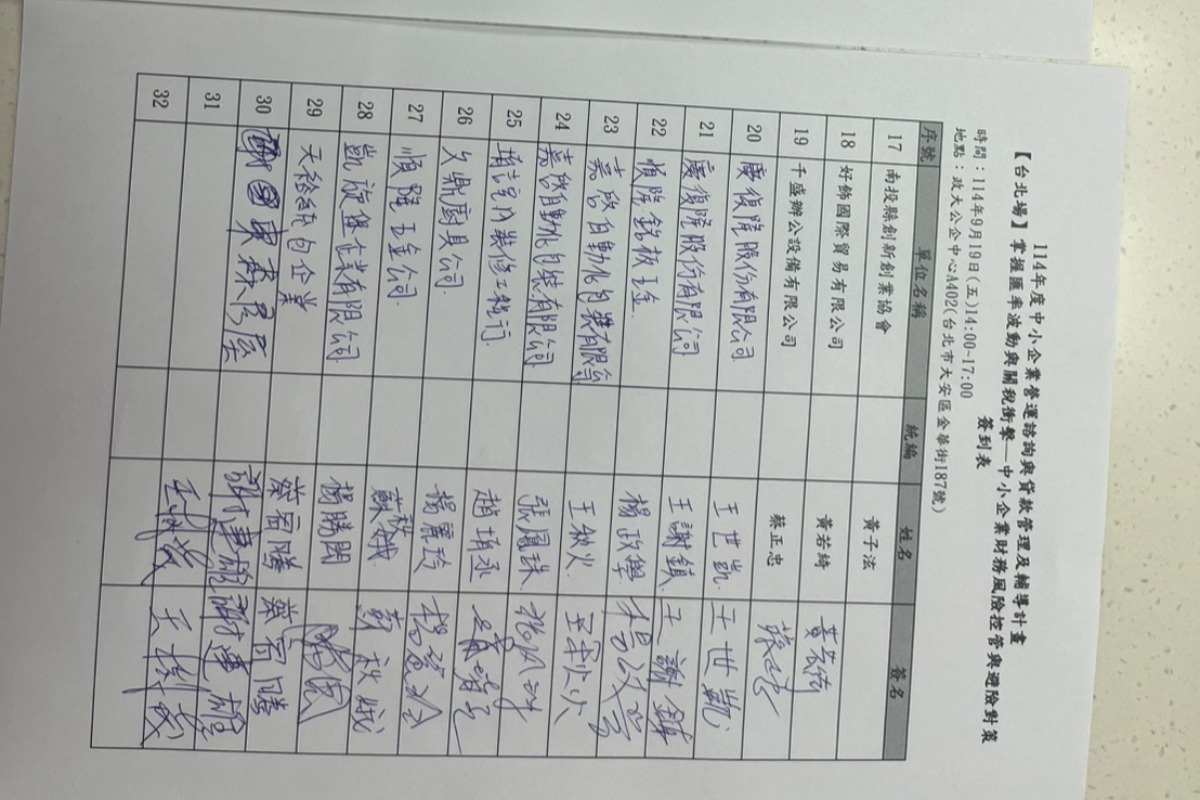 114年度中小企業營運諮詢與貸款管理及輔導計畫
【台北場】掌握匯率波動與關稅衝擊—中小企業財務風險控管與避險對策
簽到表
時間：114年9月19日(五)14:00-17:00
地點：政大公企中心A402(台北市大安區金華街187號)
序號 單位名稱 統編 姓名 簽名
17 南投縣創新創業協會 黃子法
18 好飾國際貿易有限公司 黃若綺 黃若綺
19 千盛辦公設備有限公司 蔡正忠
20 慶復隆股份有限公司 王世凱 王世凱
21 慶復隆股份有限公司 王謝鎮 王謝鎮
22 恆隆銘板五金 楊政學
23 嘉啓自動化包裝有限公司 王秋火 王秋火
24 嘉啓自動化包裝有限公司 張鳳珠
25 室內裝修工程行 趙
26 久鼎廚具公司 楊麗玲
27 順隆五金公司 蘇秋娥 蘇秋娥
28 凱旋堡企業有限公司 楊勝閎
29 天裕統包企業 蔡 騰 蔡 騰
30 東森房屋 謝
31 王 王
32